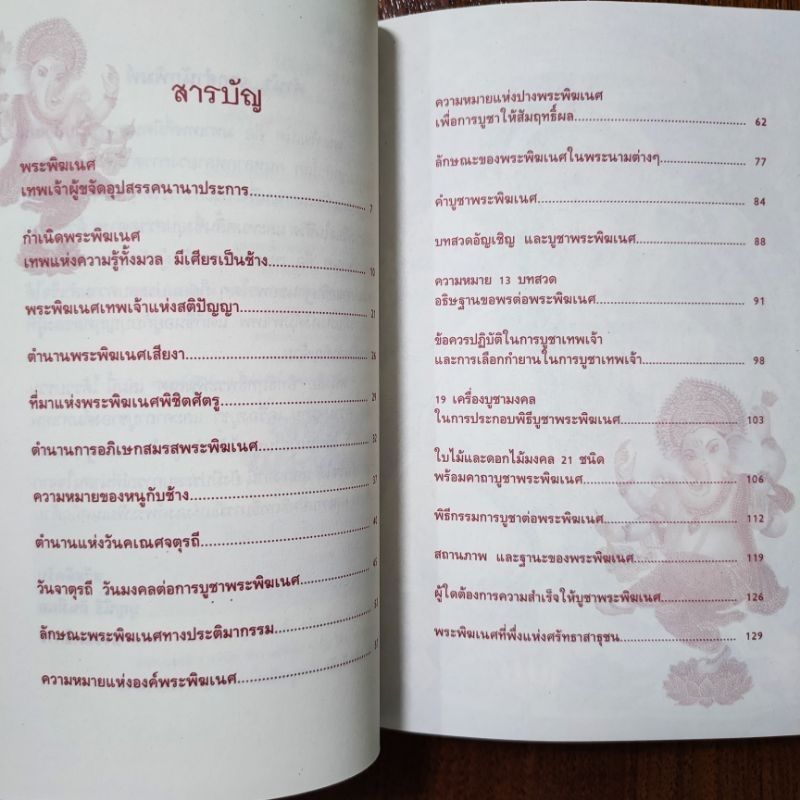 สารบัญ
พระพิฆเนศ
เทพเจ้าผู้ขจัดอุปสรรคนานาประการ 7
กำเนิดพระพิฆเนศ
เทพแห่งความรู้ทั้งมวล มีเศียรเป็นช้าง 10
พระพิฆเนศเทพเจ้าแห่งสติปัญญา 21
ตำนานพระพิฆเนศเสียงา 26
ที่มาแห่งพระพิฆเนศพิชิตศัตรู 29
ตำนานการอภิเษกสมรสพระพิฆเนศ 32
ความหมายของหนูกับช้าง 37
ตำนานแห่งวันคเณศจตุรถี 40
วันจาตุรถี วันมงคลต่อการบูชาพระพิฆเนศ 45
ลักษณะพระพิฆเนศทางประติมากรรม
ความหมายแห่งองค์พระพิฆเนศ 57
ความหมายแห่งปางพระพิฆเนศ
เพื่อการบูชาให้สัมฤทธิ์ผล 62
ลักษณะของพระพิฆเนศในพระนามต่างๆ 77
คำบูชาพระพิฆเนศ 84
บทสวดอัญเชิญ และบูชาพระพิฆเนศ 88
ความหมาย 13 บทสวด
อธิษฐานขอพรต่อพระพิฆเนศ 91
ข้อควรปฏิบัติในการบูชาเทพเจ้า
และการเลือกกำยานในการบูชาเทพเจ้า 98
19 เครื่องบูชามงคล
ในการประกอบพิธีบูชาพระพิฆเนศ 103
ใบไม้และดอกไม้มงคล 21 ชนิด
พร้อมคาถาบูชาพระพิฆเนศ 106
พิธีกรรมการบูชาต่อพระพิฆเนศ 112
สถานภาพ และฐานะของพระพิฆเนศ 119
ผู้ใดต้องการความสำเร็จให้บูชาพระพิฆเนศ 126
พระพิฆเนศที่พึ่งแห่งศรัทธาสาธุชน 129